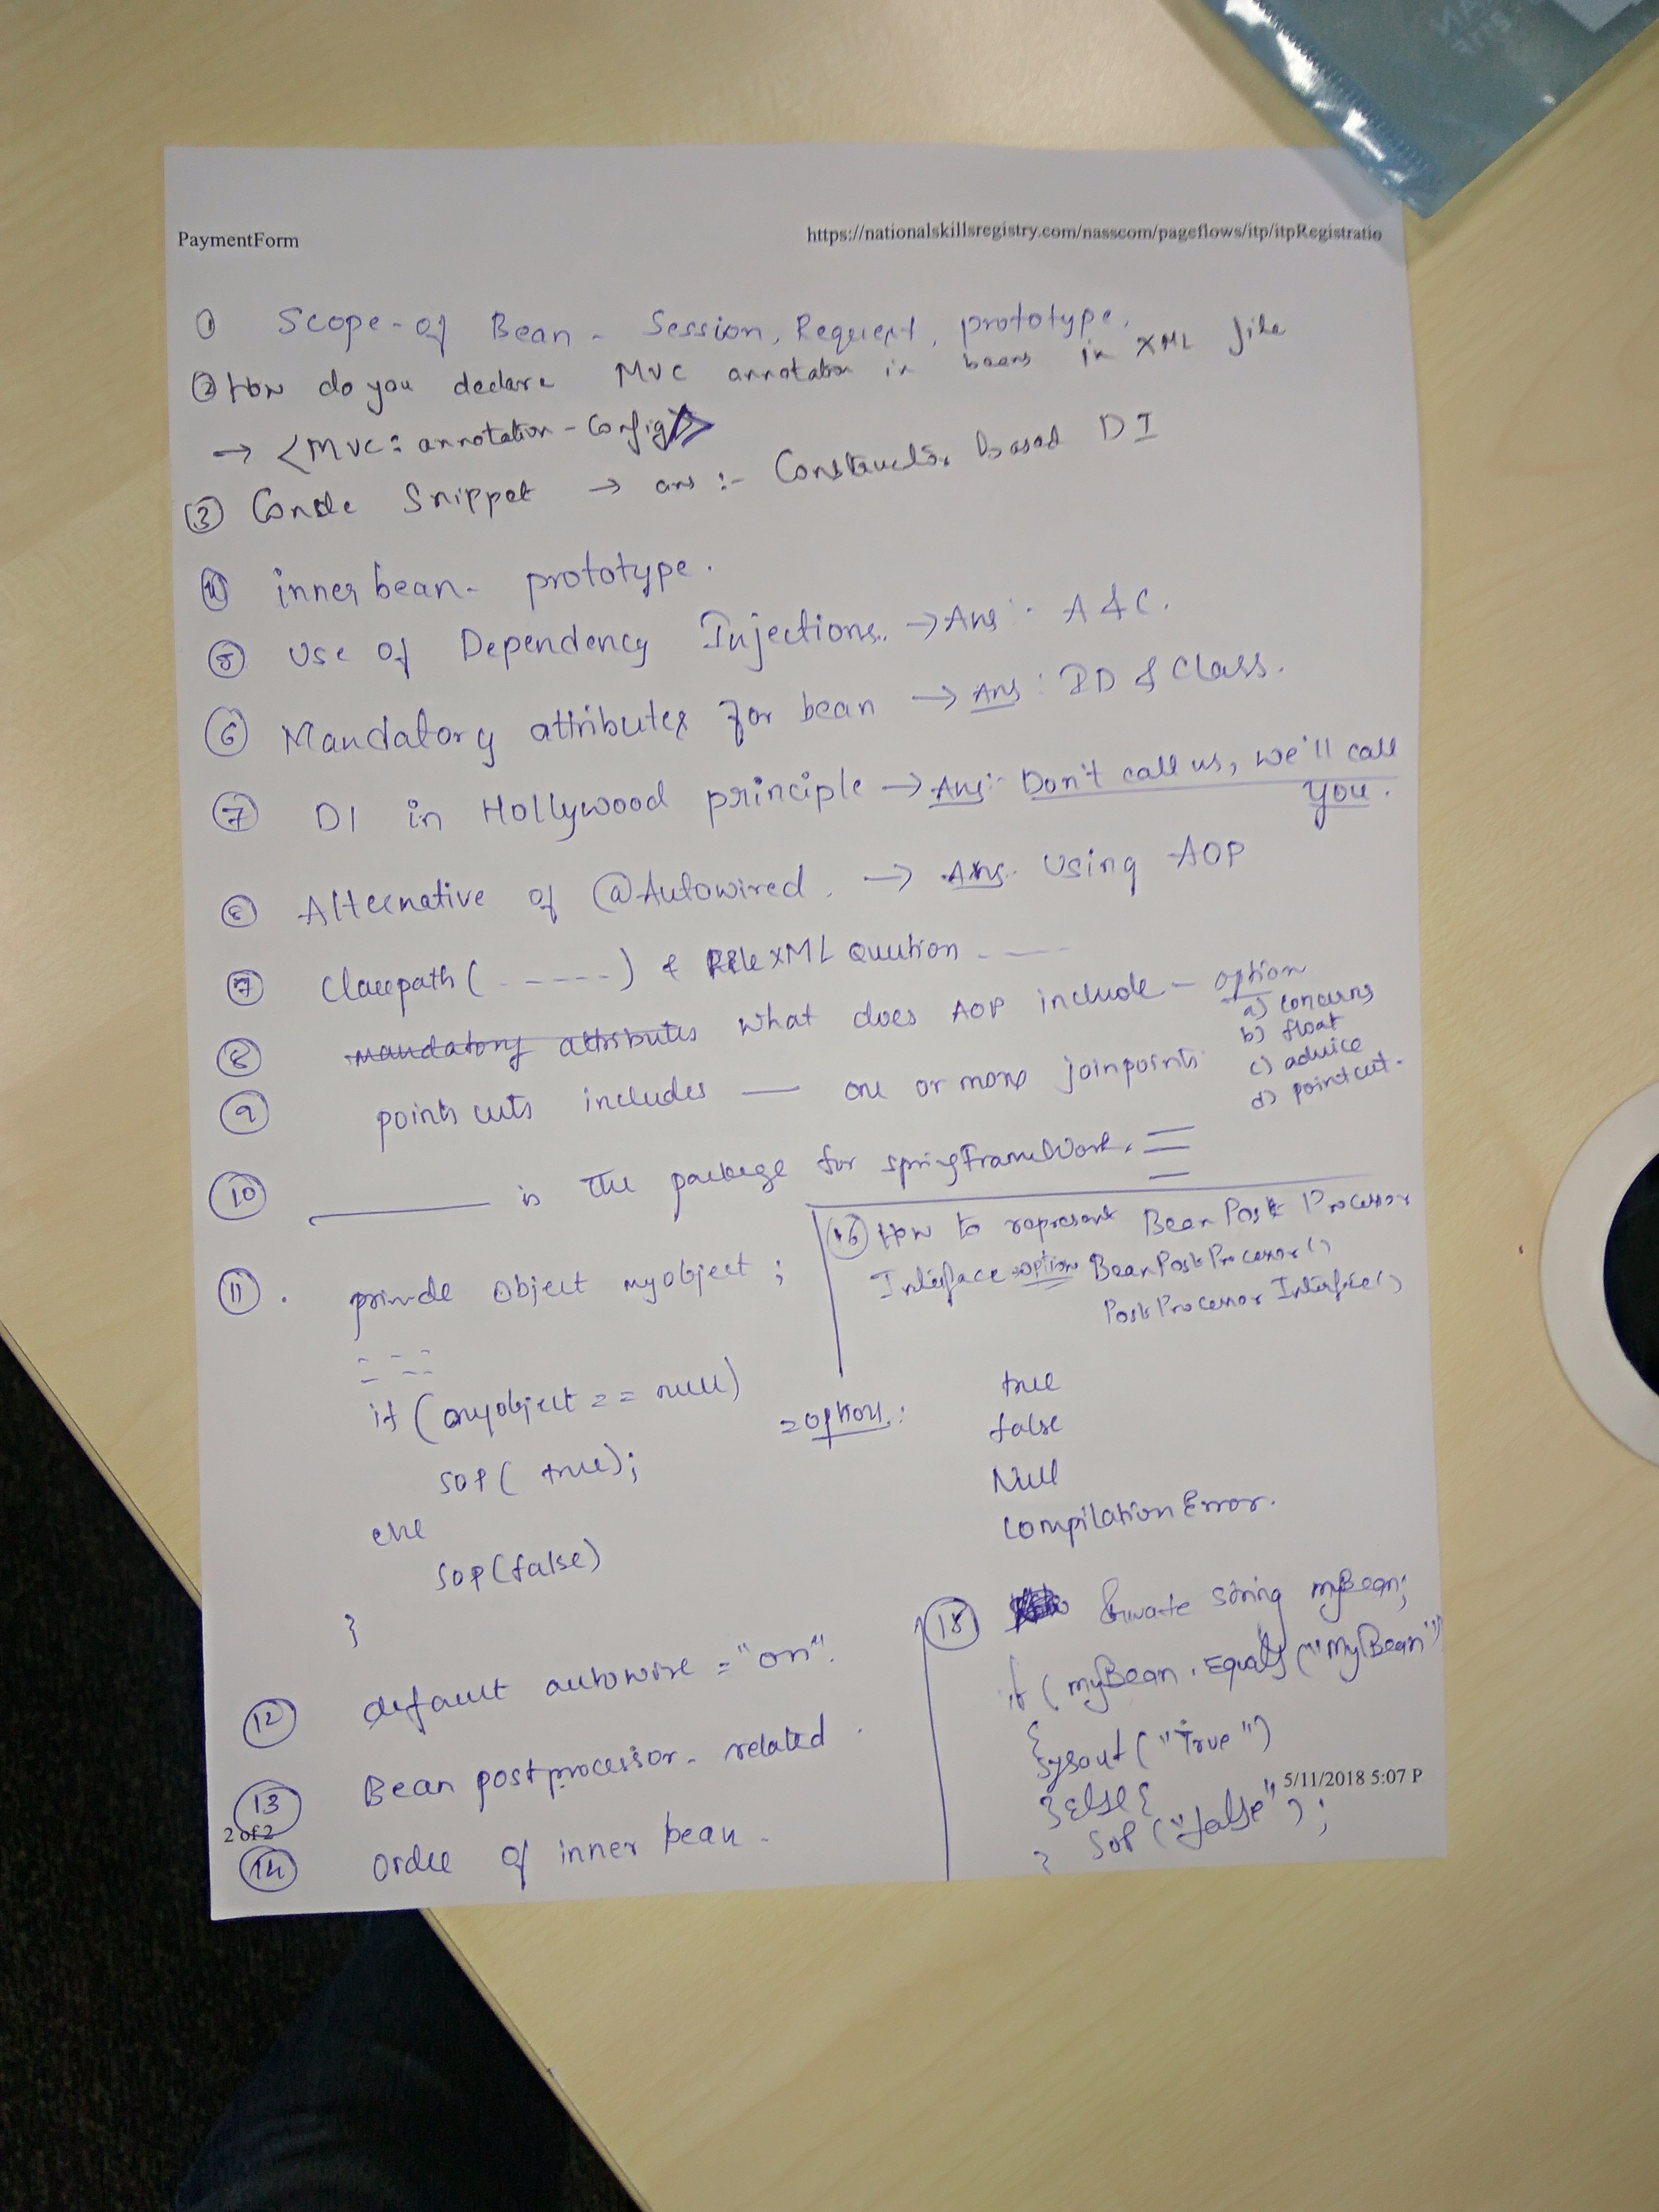 PaymentForm
https://nationalskillsregistry.com/nasscom/pageflows/itp/itpRegistratio
① Scope-of Bean - Session, Request, prototype.
② How do you declare MVC annotation in beans in XML file
→ <mvc: annotation-config/>
③ Conde Snippet → ans :- Constructor based DI
④ inner bean - prototype.
⑤ Use of Dependency Injections. → Ans :- A & C.
⑥ Mandatory attributes for bean → Ans : ID & Class.
⑦ DI in Hollywood principle → Ans:- Don't call us, we'll call
you.
⑧ Alternative of @Autowired. → Ans. Using AOP
⑦ Classpath ( - - - - - ) & File XML Question - - —
⑧ mandatory attributes what does AOP include - option
a) concerns
b) float
c) advice
d) pointcut.
⑨ points cuts includes — one or more joinpoints
⑩ ______ is the package for springFrameWork.
⑪ . private Object myobject ;
if ( myobject == null)
SOP ( true);
else
SOP (false)
}
= option :
true
false
Null
Compilation Error.
⑯ How to represent Bean Post Processor
Interface → option BeanPostProcessor()
PostProcessor Interface()
⑫ default autowire = "on".
⑬ Bean postprocessor - related .
⑭ Order of inner bean -
⑮ Private String myBean;
if ( myBean . Equals ("MyBean")
{
sysout ( "True ")
} else {
SOP ("false" ) ;
}
5/11/2018 5:07 P
2 of 2